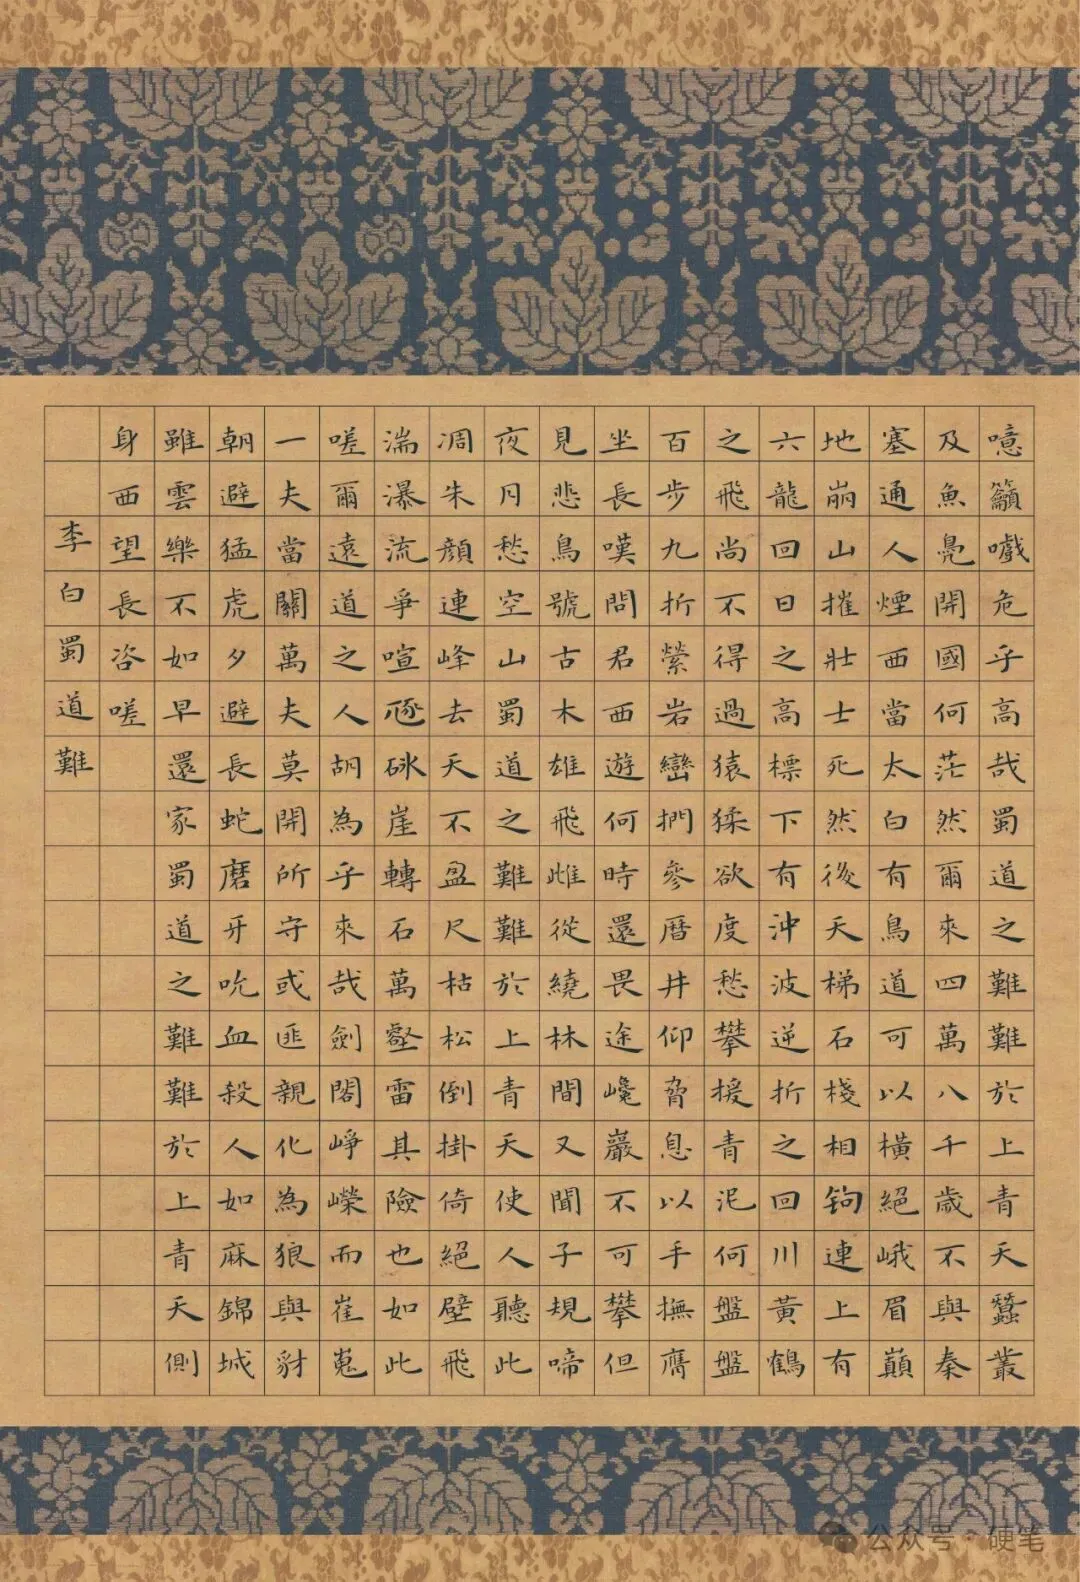 噫籲嚱危乎高哉蜀道之難難於上青天蠶叢
及魚鳧開國何茫然爾來四萬八千歲不與秦
塞通人煙西當太白有鳥道可以橫絕峨眉巔
地崩山摧壯士死然後天梯石棧相鉤連上有
六龍回日之高標下有沖波逆折之回川黃鶴
之飛尚不得過猿猱欲度愁攀援青泥何盤盤
百步九折縈岩巒捫參曆井仰脅息以手撫膺
坐長嘆問君西遊何時還畏途巉巖不可攀但
見悲鳥號古木雄飛雌從繞林間又聞子規啼
夜月愁空山蜀道之難難於上青天使人聽此
凋朱顏連峰去天不盈尺枯松倒掛倚絕壁飛
湍瀑流爭喧豗砯崖轉石萬壑雷其險也如此
嗟爾遠道之人胡為乎來哉劍閣崢嶸而崔嵬
一夫當關萬夫莫開所守或匪親化為狼與豺
朝避猛虎夕避長蛇磨牙吮血殺人如麻錦城
雖雲樂不如早還家蜀道之難難於上青天側
身西望長咨嗟
李白蜀道難
公众号·硬笔